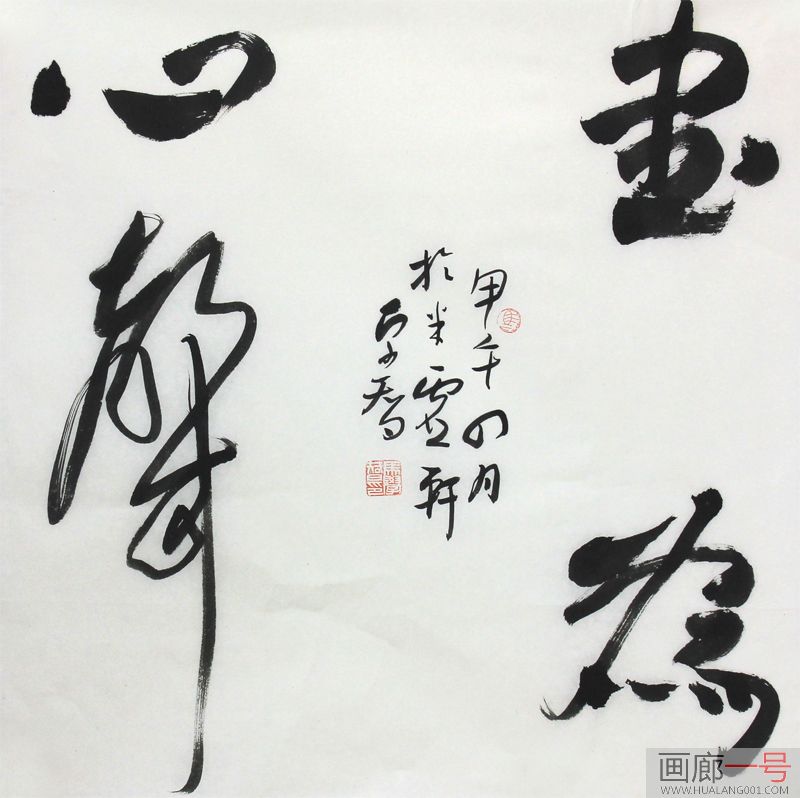 書為
心聲
甲午四月
於米虛軒
画廊一号
WWW.HUALANG001.COM